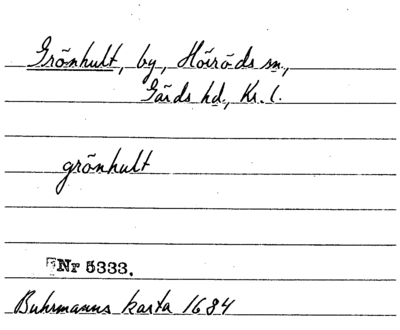 Grönhult, by, Höröds sn.,
Gärds hd., Kr. l.
grönhult
Nr 5333.
Buhrmanns karta 1684